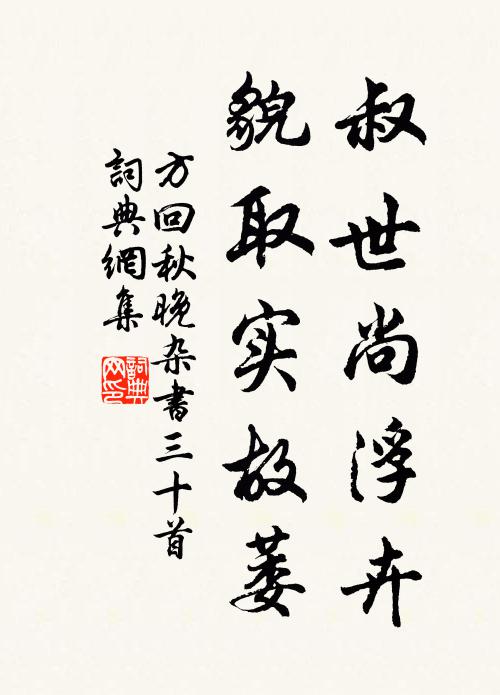 叔世尚浮卉
貌取实故萎
方回秋晚杂书三十首
詞典網集
詞典网印